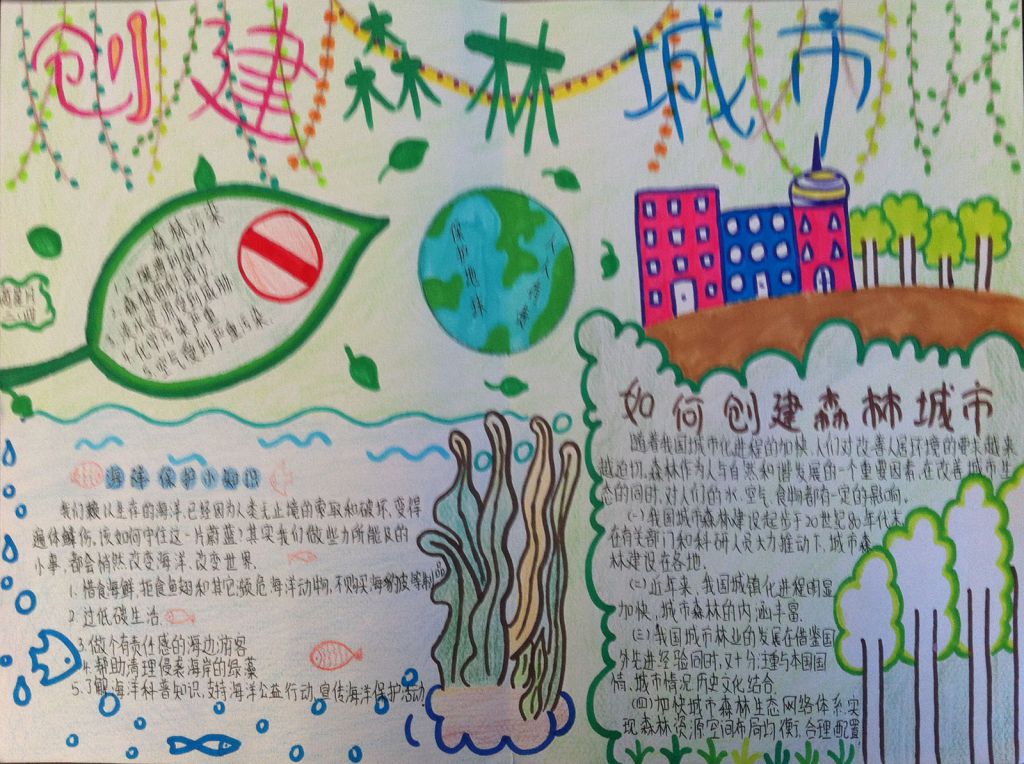 创建森林城市
森林污染
森林面积减少
5.空气受到严重污染.
保护地球
人人有责
海洋保护小知识
我们赖以生存的海洋,已经因为人类无止境的索取和破坏,变得
遍体鳞伤,该如何守住这一片蔚蓝?其实我们做些力所能及的
小事,都会悄然改变海洋、改变世界.
1.惜食海鲜,拒食鱼翅和其它濒危海洋动物,不购买海豹皮等制品
2.过低碳生活.
3.做个有责任感的海边游客
4.帮助清理侵袭海岸的绿藻
5.了解海洋科普知识,支持海洋公益行动,宣传海洋保护活动.
如何创建森林城市
随着我国城市化进程的加快,人们对改善人居环境的要求越来
越迫切,森林作为人与自然和谐发展的一个重要因素,在改善城市生
态的同时,对人们的水、空气、食物都有一定的影响。
(一)我国城市森林建设起步于20世纪80年代末
在有关部门和科研人员大力推动下,城市森
林建设在各地.
(二)近年来,我国城镇化进程明显
加快,城市森林的内涵丰富.
(三)我国城市林业的发展在借鉴国
外先进经验同时,又十分注重与本国国
情、城市情况、历史文化结合.
(四)加快城市森林生态网络体系,实
现森林资源空间布局均衡、合理配置.